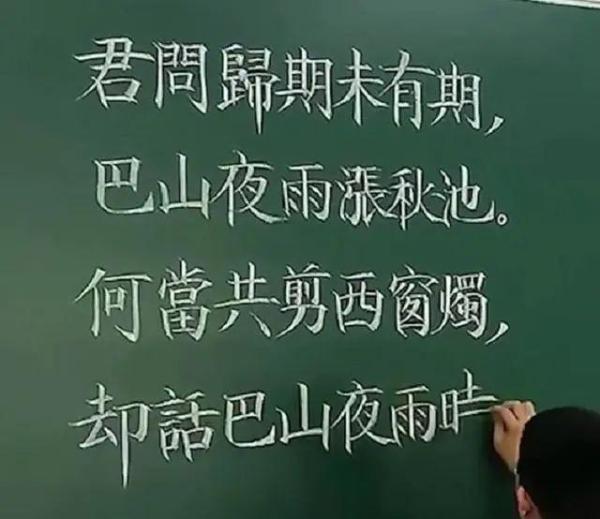 君問歸期未有期，
巴山夜雨漲秋池。
何當共剪西窗燭，
却話巴山夜雨